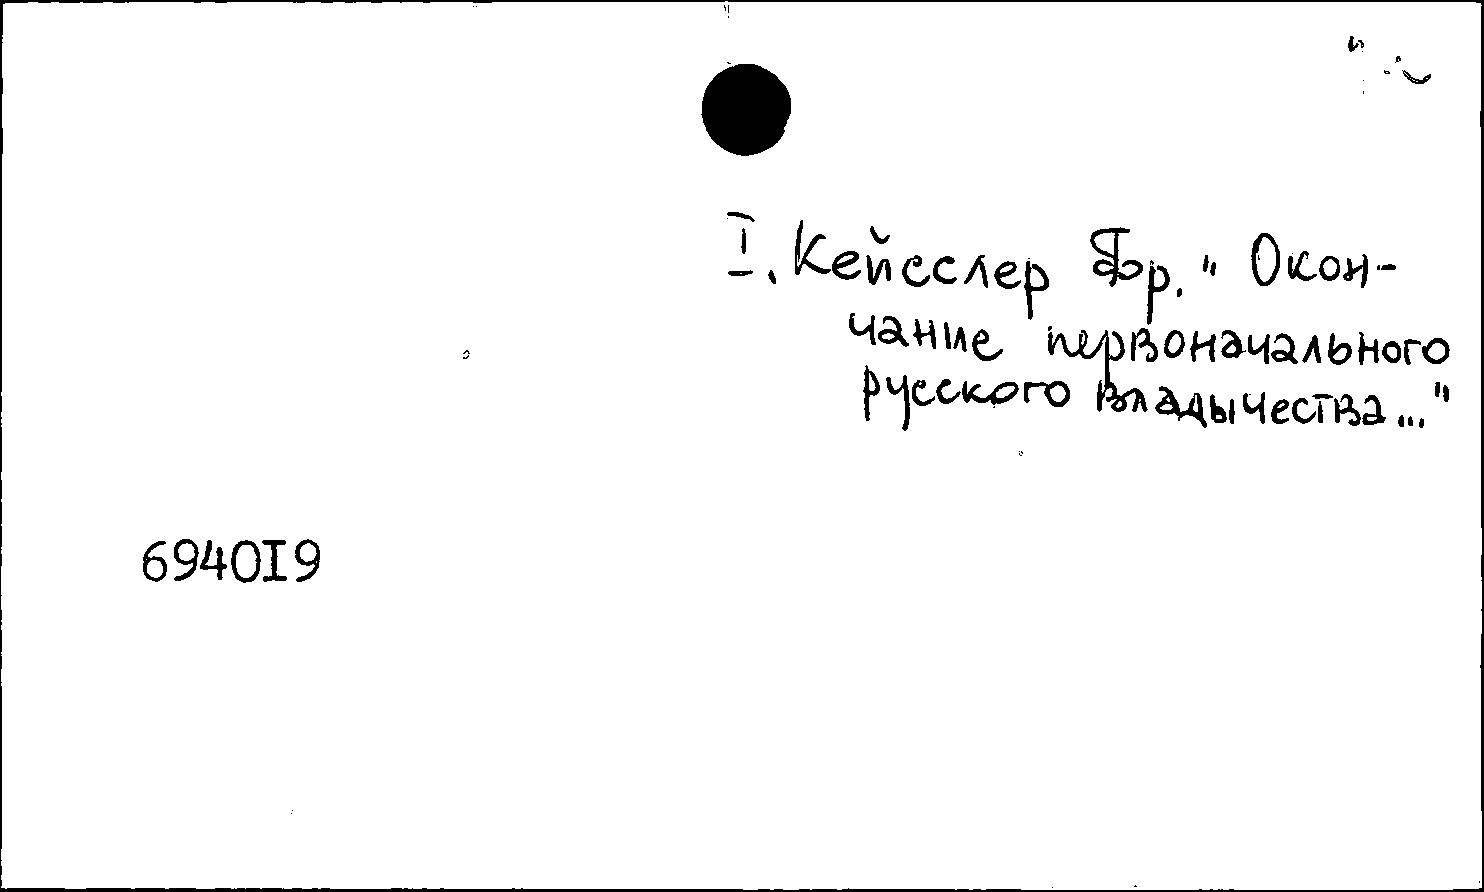 I. Кейсслер Фр. " Окон-
чание первоначального
русского владычества..."
694OI9